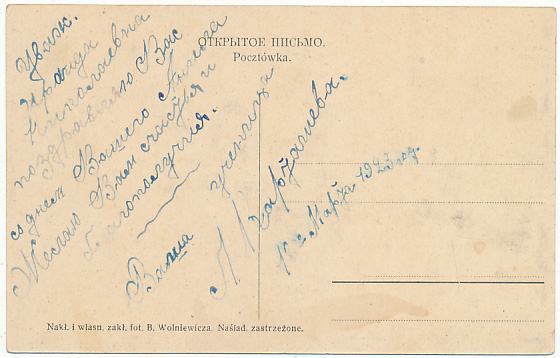 ОТКРЫТОЕ ПИСЬМО.
Pocztówka.
Уваж.
Николаевна
поздравляю Вас
со днем Вашего Ангела
Желаю Вам счастья и
благополучия.
Ваша ученица
Марта 1923 год.
Nakł. i własn. zakł. fot. B. Wolniewicza. Naślad. zastrzeżone.